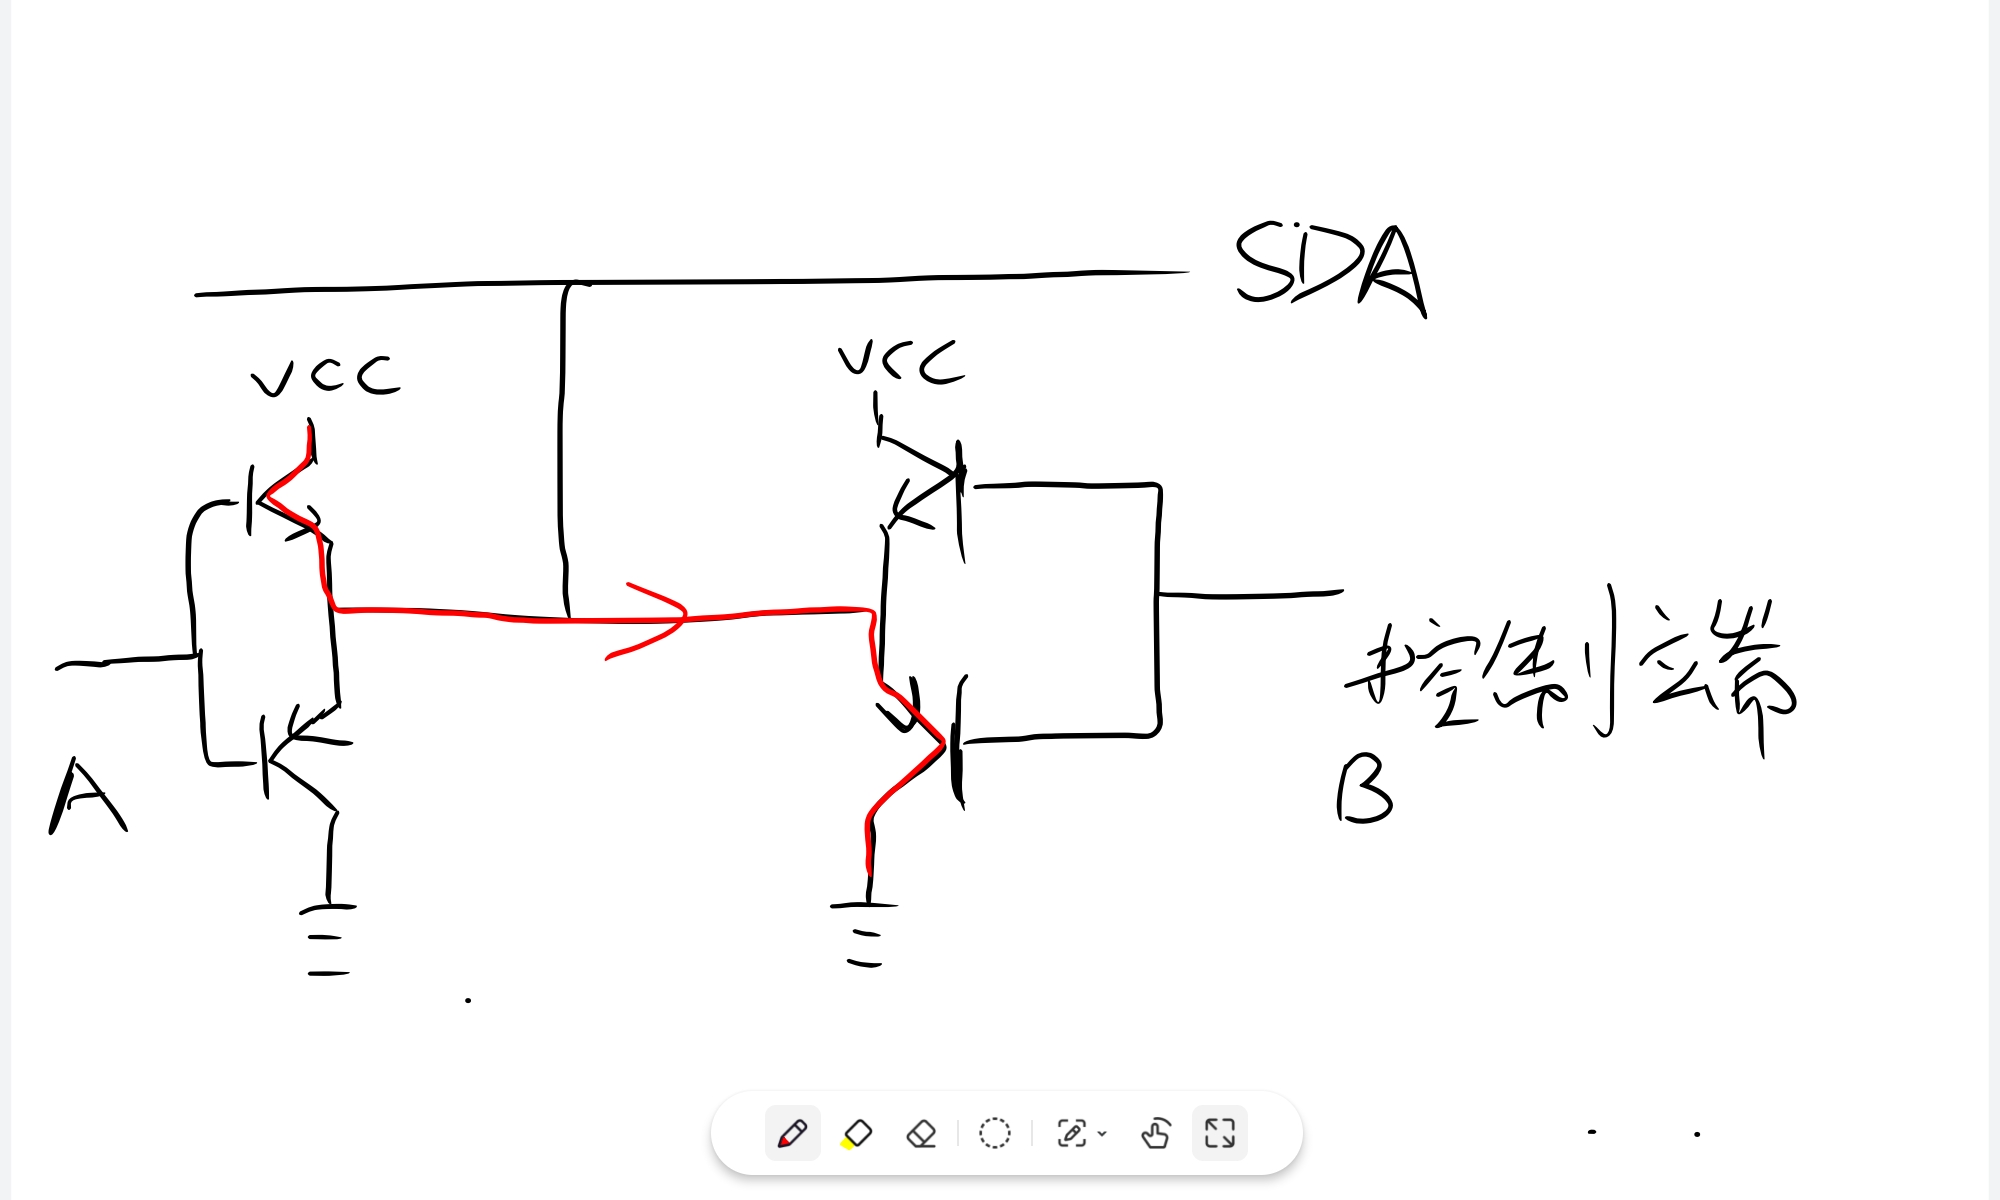 SDA
VCC
VCC
控制端
A
B